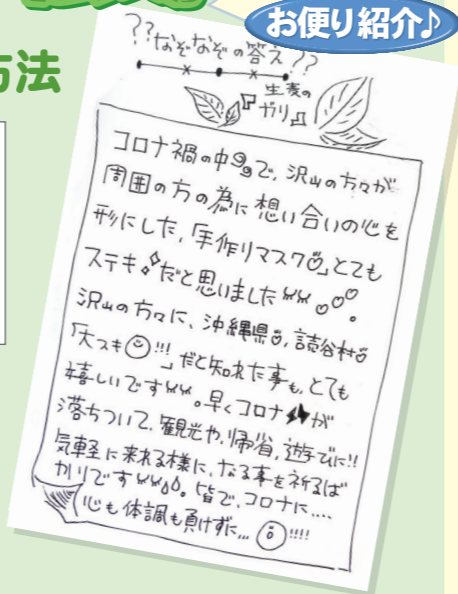 お便り紹介♪
方法
??なぞなぞの答え??
生麦の
『ガリ』
コロナ禍の中で、沢山の方々が
周囲の方の為に想い合いの心を
形にした、「手作りマスク」とても
ステキだと思いました。
沢山の方々に、沖縄県、読谷村
「大スキ!!!」だと知れた事も、とても
嬉しいです。早くコロナが
落ちついて、観光や、帰省、遊びに!!
気軽に来れる様に、なる事を祈るば
かりです。皆で、コロナに....
心も体調も負けずに...!!!!